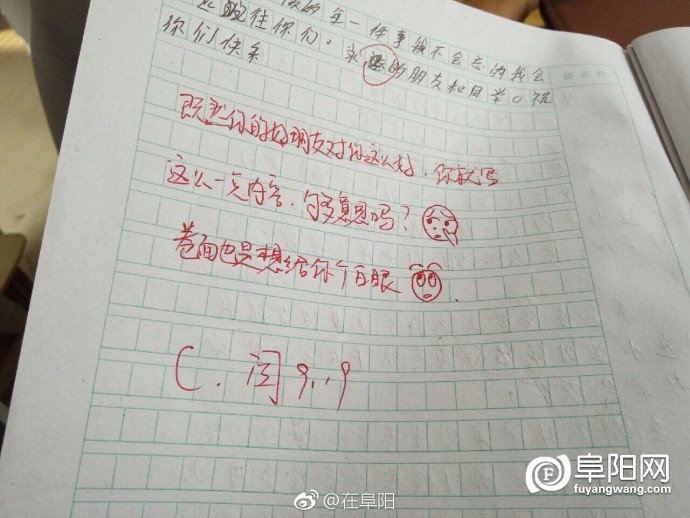 做的每一件事我不会忘的我会
记住你们,永远的朋友和同学。祝
你们快乐
既然你的好朋友对你这么好,你就写
这么一点内容,够意思吗?
卷面也是想给你个白眼
C. 闫 9.19
@在阜阳
阜阳网
fuyangwang.com